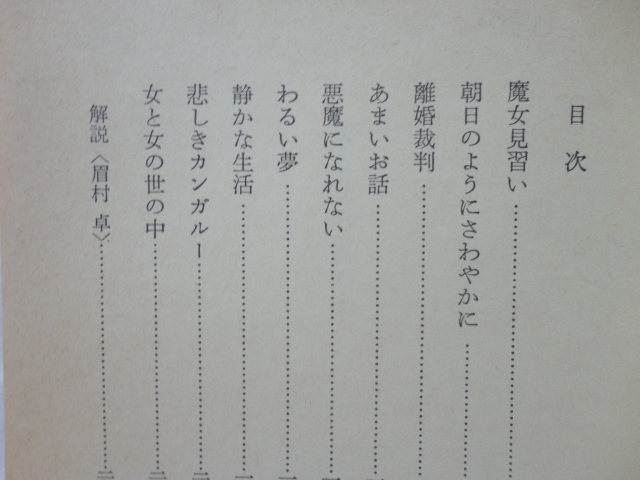 目次
魔女見習い
朝日のようにさわやかに
離婚裁判
あまいお話
悪魔になれない
わるい夢
静かな生活
悲しきカンガルー
女と女の世の中
解説〈眉村 卓〉